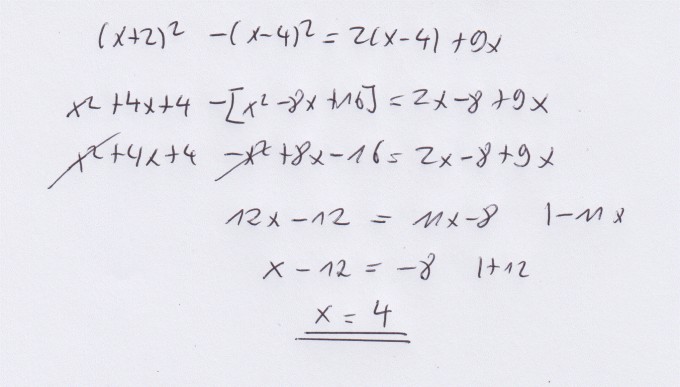 (x+2)² -(x-4)² = 2(x-4) +9x
x² +4x+4 -[x² -8x +16] = 2x-8 +9x
x² +4x+4 -x² +8x-16 = 2x-8+9x
12x-12 = 11x-8 |-11x
x - 12 = -8 |+12
x = 4